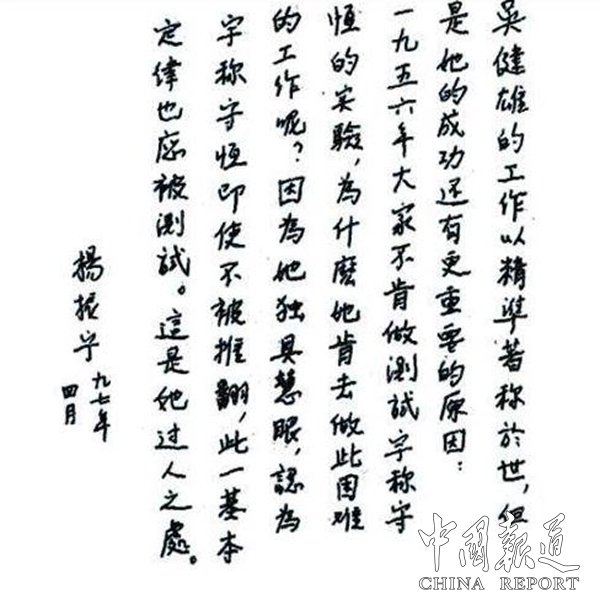 吳健雄的工作以精準著称於世，但
是她的成功还有更重要的原因：
一九五六年大家不肯做测試宇称守
恒的实驗，為什麽她肯去做此困难
的工作呢？因為她独具慧眼，認為
宇称守恒即使不被推翻，此一基本
定律也应被测試。這是她过人之處。
楊振宁
九七年
四月
中國報道
CHINA REPORT